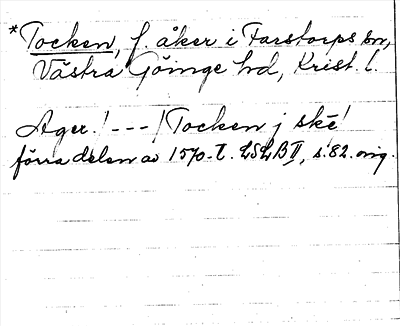 *Tocken, f. åker i Farstorps sn,
Västra Göinge hd, Krist. l.
Ager! --- / Tocken j ske!
förra delen av 1570-t. LSLB II, s. 82. orig.